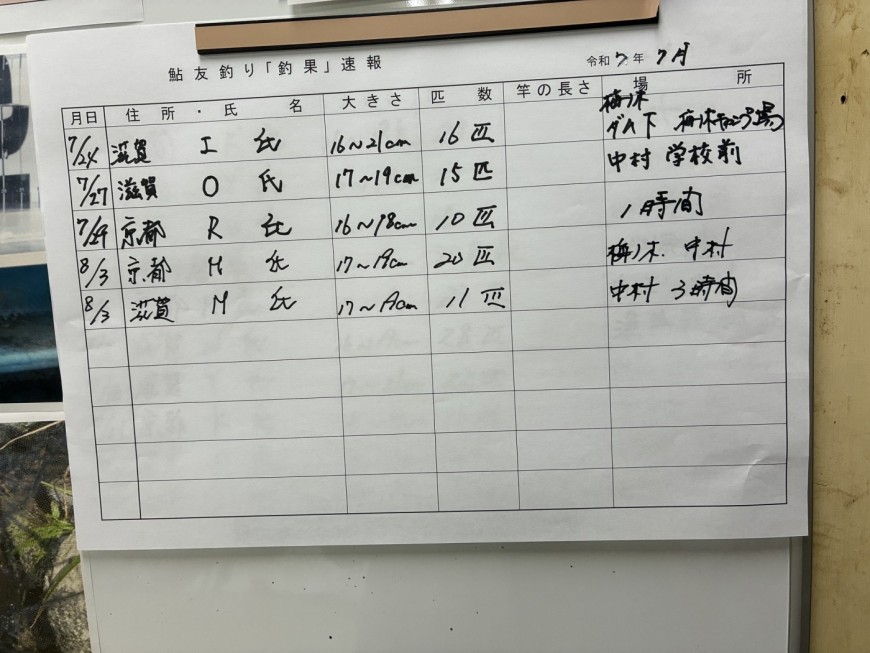 鮎友釣り「釣果」速報
令和7年 7月
月日 住所・氏名 大きさ 匹数 竿の長さ 場所
梅ノ木
7/24 滋賀 I 氏 16〜21cm 16匹 ダム下 梅ノ木キャンプ場
7/27 滋賀 O 氏 17〜19cm 15匹 中村 学校前
7/29 京都 R 氏 16〜18cm 10匹 1時間
8/3 京都 H 氏 17〜19cm 20匹 梅ノ木. 中村
8/3 滋賀 M 氏 17〜19cm 11匹 中村 3時間